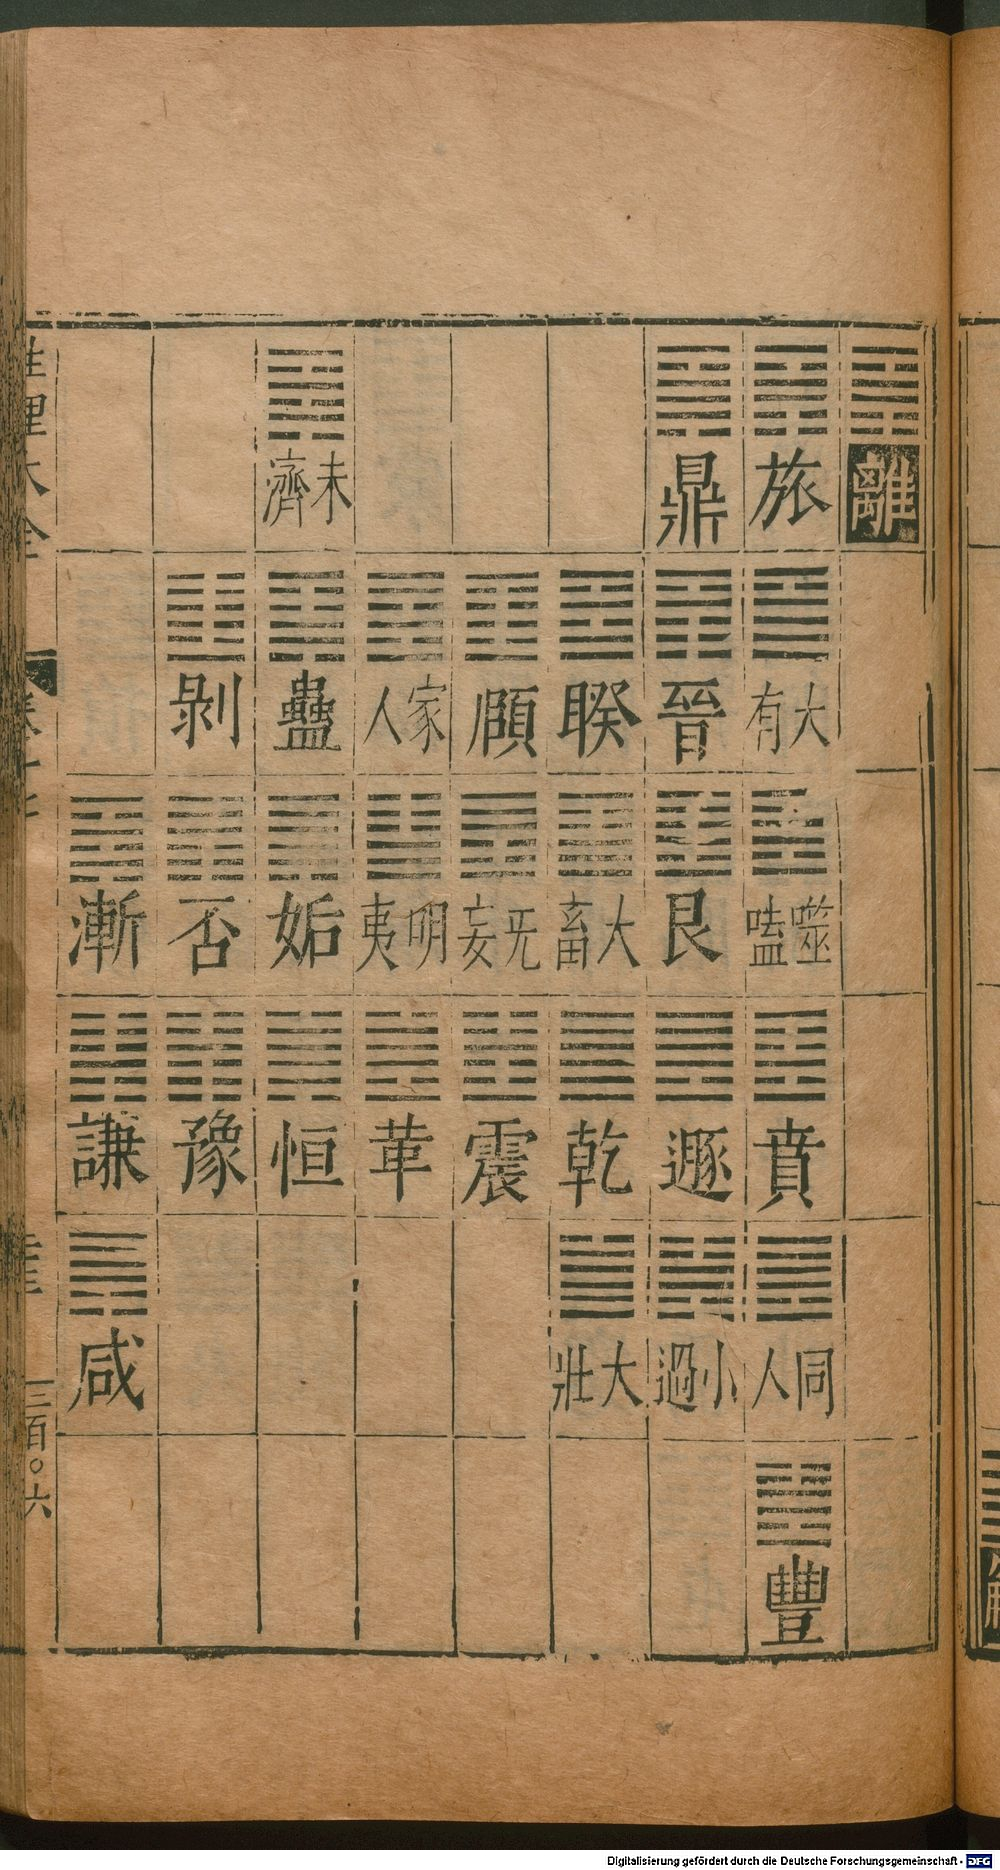 離
旅
大有
噬嗑
賁
同人
豐
鼎
晉
艮
遯
小過
睽
大畜
乾
大壯
頤
无妄
震
家人
明夷
革
未濟
蠱
姤
恒
剝
否
豫
漸
謙
咸
性理大全
三百〇六
Digitalisierung gefördert durch die Deutsche Forschungsgemeinschaft - DFG